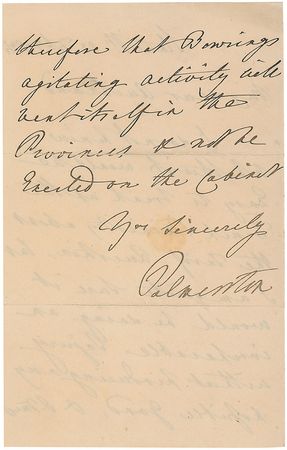 therefore that Bowrings
agitating activity will
vent itself in the
Provinces & not be
Exerted on the Cabinet
Yrs Sincerely
Palmerston